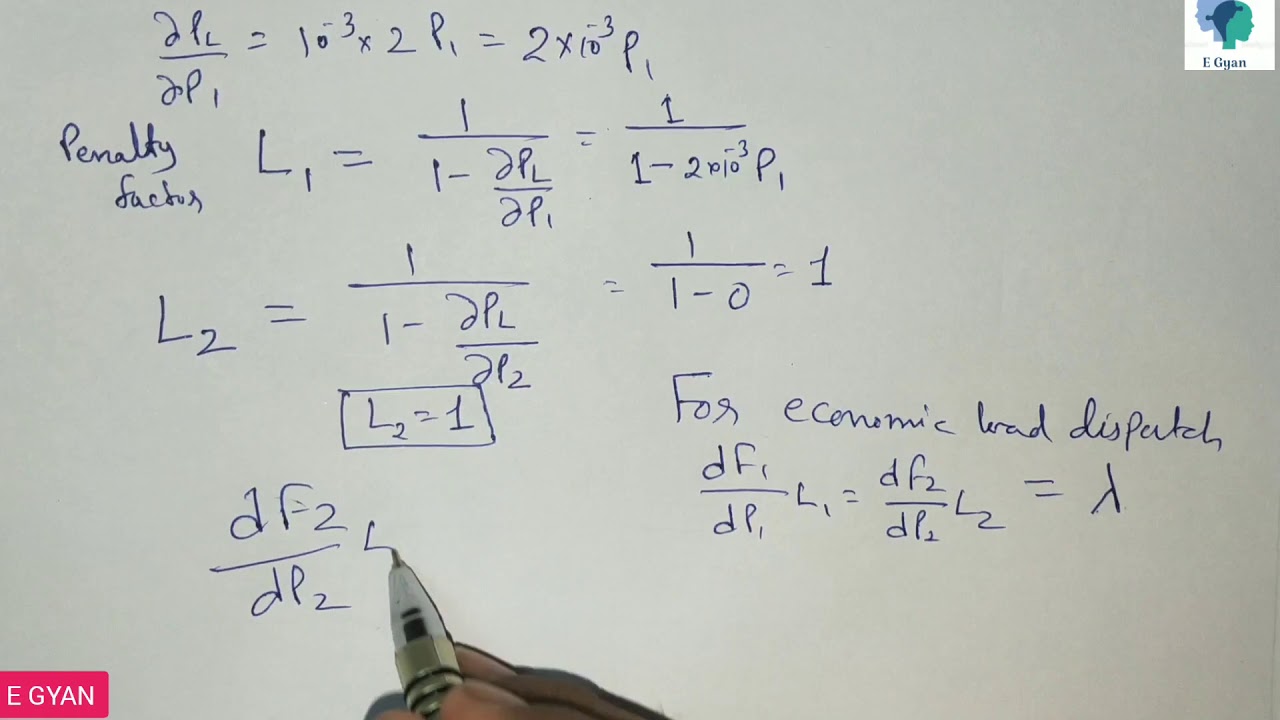 ∂PL/∂P₁ = 10⁻³ × 2 P₁ = 2×10⁻³ P₁
E Gyan
Penalty factor L₁ = 1/(1 - ∂PL/∂P₁) = 1/(1 - 2×10⁻³ P₁)
L₂ = 1/(1 - ∂PL/∂P₂) = 1/(1 - 0) = 1
L₂ = 1
For economic load dispatch
dF₁/dP₁ L₁ = dF₂/dP₂ L₂ = λ
dF₂/dP₂ L
E GYAN